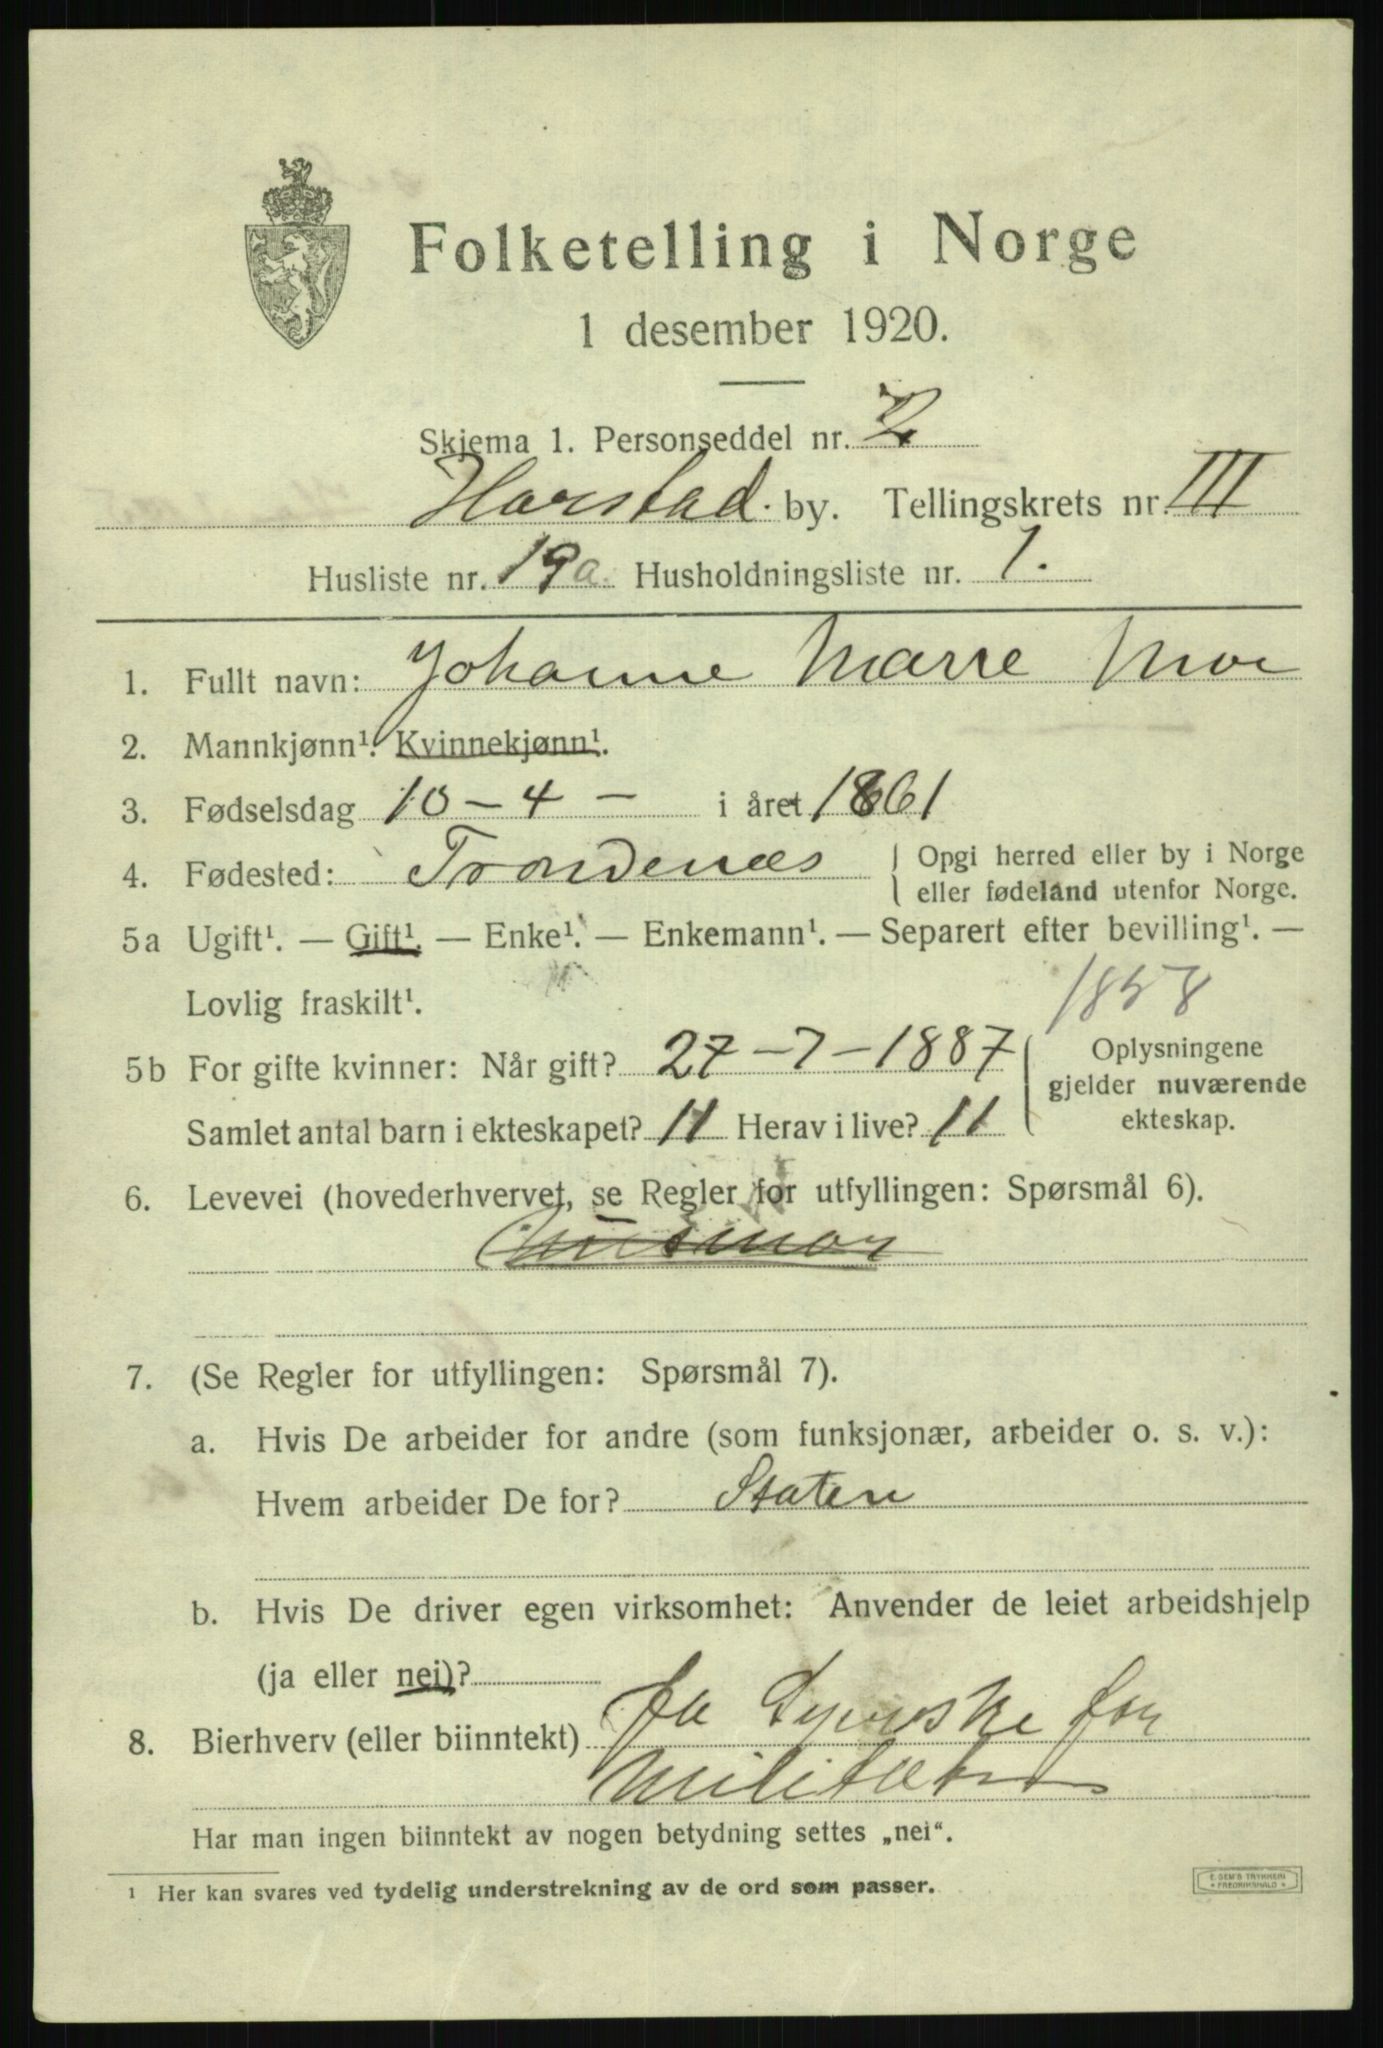 Folketelling i Norge
1 desember 1920.
Skjema 1. Personseddel nr. 2
Harstad by. Tellingskrets nr. III
Husliste nr. 19a Husholdningsliste nr. 1.
1. Fullt navn: Johanne Marie Moe
2. Mannkjønn¹. Kvinnekjønn¹.
3. Fødselsdag 10-4- i året 1861
4. Fødested: Trondenæs { Opgi herred eller by i Norge
eller fødeland utenfor Norge.
5a Ugift¹. — Gift¹. — Enke¹. — Enkemann¹. — Separert efter bevilling¹. —
Lovlig fraskilt¹. 1858
5b For gifte kvinner: Når gift? 27-7-1887 { Oplysningene
gjelder nuværende
ekteskap.
Samlet antal barn i ekteskapet? 11 Herav i live? 11
6. Levevei (hovederhvervet, se Regler for utfyllingen: Spørsmål 6).
Husmor
7. (Se Regler for utfyllingen: Spørsmål 7).
a. Hvis De arbeider for andre (som funksjonær, arbeider o. s. v.):
Hvem arbeider De for? Staten
b. Hvis De driver egen virksomhet: Anvender de leiet arbeidshjelp
(ja eller nei)?
8. Bierhverv (eller biinntekt) Ja for
Har man ingen biinntekt av nogen betydning settes „nei“.
¹ Her kan svares ved tydelig understrekning av de ord som passer.
E. SEM'S TRYKKERI
* FREDRIKSHALD *